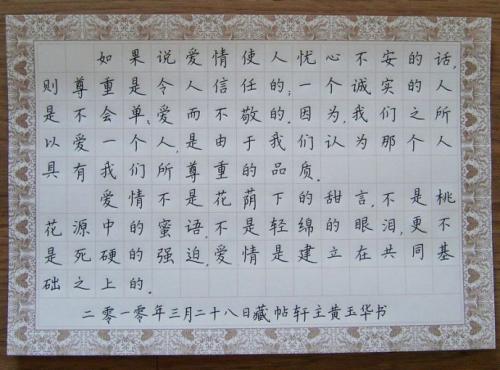 如果说爱情使人忧心不安的话,
则尊重是令人信任的;一个诚实的人
是不会单单爱而不敬的。因为,我们之所
以爱一个人,是由于我们认为那个人
具有我们所尊重的品质.
爱情不是花荫下的甜言,不是桃
花源中的蜜语,不是轻绵的眼泪,更不
是死硬的强迫,爱情是建立在共同基
础之上的.
二零一零年三月二十八日藏帖轩主黄玉华书